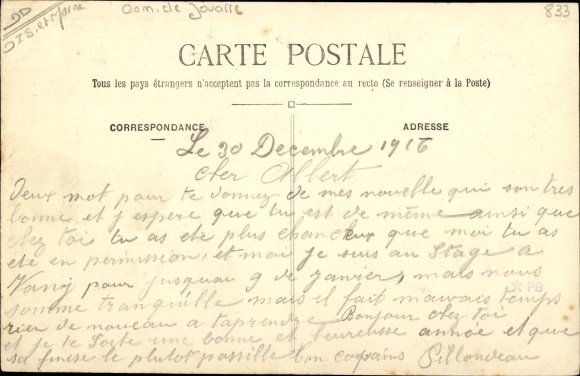 DD
DTS. et Marne
Com. de Jouarre
833
CARTE POSTALE
Tous les pays étrangers n'acceptent pas la correspondance au recto (Se renseigner à la Poste)
CORRESPONDANCE
ADRESSE
Le 30 Decembre 1916
cher Albert
Deux mot pour te donner de mes nouvelle qui son tres
bonne et j espere que tu est de même ainsi que
chez toi tu as ete plus chanceux que moi tu as
ete en permission, et moi je suis au Stage a
pour jusquau 9 de janvier, mais nous
somme tranquille mais il fait mauvais temps
PB
rien de nouveau a taprendre Bonjour chez toi
et je te Soite une bonne et heureusse année et que
sa finise le plutot possille ton copains Pillondeau